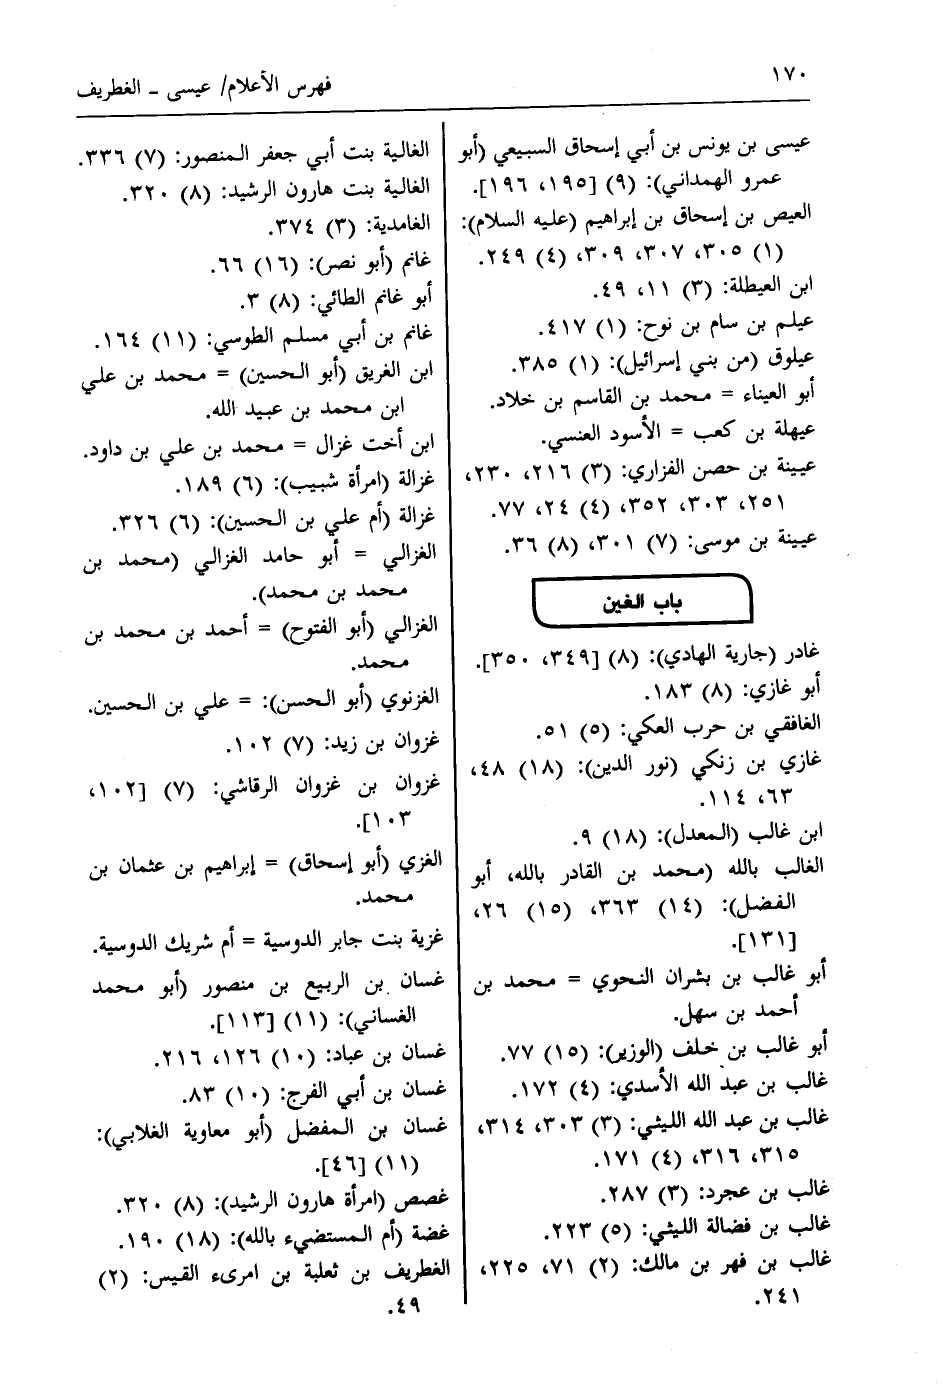 ١٧٠
فهرس الأعلام/ عيسى ـ الغطريف
عيسى بن يونس بن أبي إسحاق السبيعي (أبو
عمرو الهمداني): (٩) [١٩٥، ١٩٦].
العيص بن إسحاق بن إبراهيم (عليه السلام):
(١) ٣٠٥، ٣٠٧، ٣٠٩، (٤) ٢٤٩.
ابن العيطلة: (٣) ١١، ٤٩.
عيلم بن سام بن نوح: (١) ٤١٧.
عيلوق (من بني إسرائيل): (١) ٣٨٥.
أبو العيناء = محمد بن القاسم بن خلاد.
عيهلة بن كعب = الأسود العنسي.
عيينة بن حصن الفزاري: (٣) ٢١٦، ٢٣٠،
٢٥١، ٣٠٣، ٣٥٢، (٤) ٢٤، ٧٧.
عيينة بن موسى: (٧) ٣٠١، (٨) ٣٦.
باب الغين
غادر (جارية الهادي): (٨) [٣٤٩، ٣٥٠].
أبو غازي: (٨) ١٨٣.
الغافقي بن حرب العكي: (٥) ٥١.
غازي بن زنكي (نور الدين): (١٨) ٤٨،
٦٣، ١١٤.
ابن غالب (المعدل): (١٨) ٩.
الغالب بالله (محمد بن القادر بالله، أبو
الفضل): (١٤) ٣٦٣، (١٥) ٢٦،
[١٣١].
أبو غالب بن بشران النحوي = محمد بن
أحمد بن سهل.
أبو غالب بن خلف (الوزير): (١٥) ٧٧.
غالب بن عبد الله الأسدي: (٤) ١٧٢.
غالب بن عبد الله الليثي: (٣) ٣٠٣، ٣١٤،
٣١٥، ٣١٦، (٤) ١٧١.
غالب بن عجرد: (٣) ٢٨٧.
غالب بن فضالة الليثي: (٥) ٢٢٣.
غالب بن فهر بن مالك: (٢) ٧١، ٢٢٥،
٢٤١.
الغالية بنت أبي جعفر المنصور: (٧) ٣٣٦.
الغالية بنت هارون الرشيد: (٨) ٣٢٠.
الغامدية: (٣) ٣٧٤.
غانم (أبو نصر): (١٦) ٦٦.
أبو غانم الطائي: (٨) ٣.
غانم بن أبي مسلم الطوسي: (١١) ١٦٤.
ابن الغريق (أبو الحسين) = محمد بن علي
ابن محمد بن عبيد الله.
ابن أخت غزال = محمد بن علي بن داود.
غزالة (امرأة شبيب): (٦) ١٨٩.
غزالة (أم علي بن الحسين): (٦) ٣٢٦.
الغزالي = أبو حامد الغزالي (محمد بن
محمد بن محمد).
الغزالي (أبو الفتوح) = أحمد بن محمد بن
محمد.
الغزنوي (أبو الحسن): = علي بن الحسين.
غزوان بن زيد: (٧) ١٠٢.
غزوان بن غزوان الرقاشي: (٧) [١٠٢،
١٠٣].
الغزي (أبو إسحاق) = إبراهيم بن عثمان بن
محمد.
غزية بنت جابر الدوسية = أم شريك الدوسية.
غسان بن الربيع بن منصور (أبو محمد
الغساني): (١١) [١١٣].
غسان بن عباد: (١٠) ١٢٦، ٢١٦.
غسان بن أبي الفرج: (١٠) ٨٣.
غسان بن المفضل (أبو معاوية الغلابي):
(١١) [٤٦].
غصص (امرأة هارون الرشيد): (٨) ٣٢٠.
غضة (أم المستضيء بالله): (١٨) ١٩٠.
الغطريف بن ثعلبة بن امرىء القيس: (٢)
٤٩.